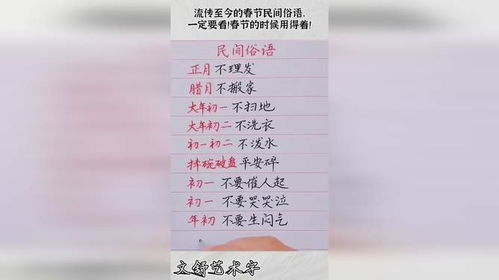 流传至今的春节民间俗语,
一定要看!春节的时候用得着!
民间俗语
正月 不理发
腊月 不搬家
大年初一 不扫地
大年初二 不洗衣
初一初二 不泼水
摔碗破盘 平安碎
初一 不要催人起
初一 不要哭哭泣
年初 不要生闷气
文舒艺术字